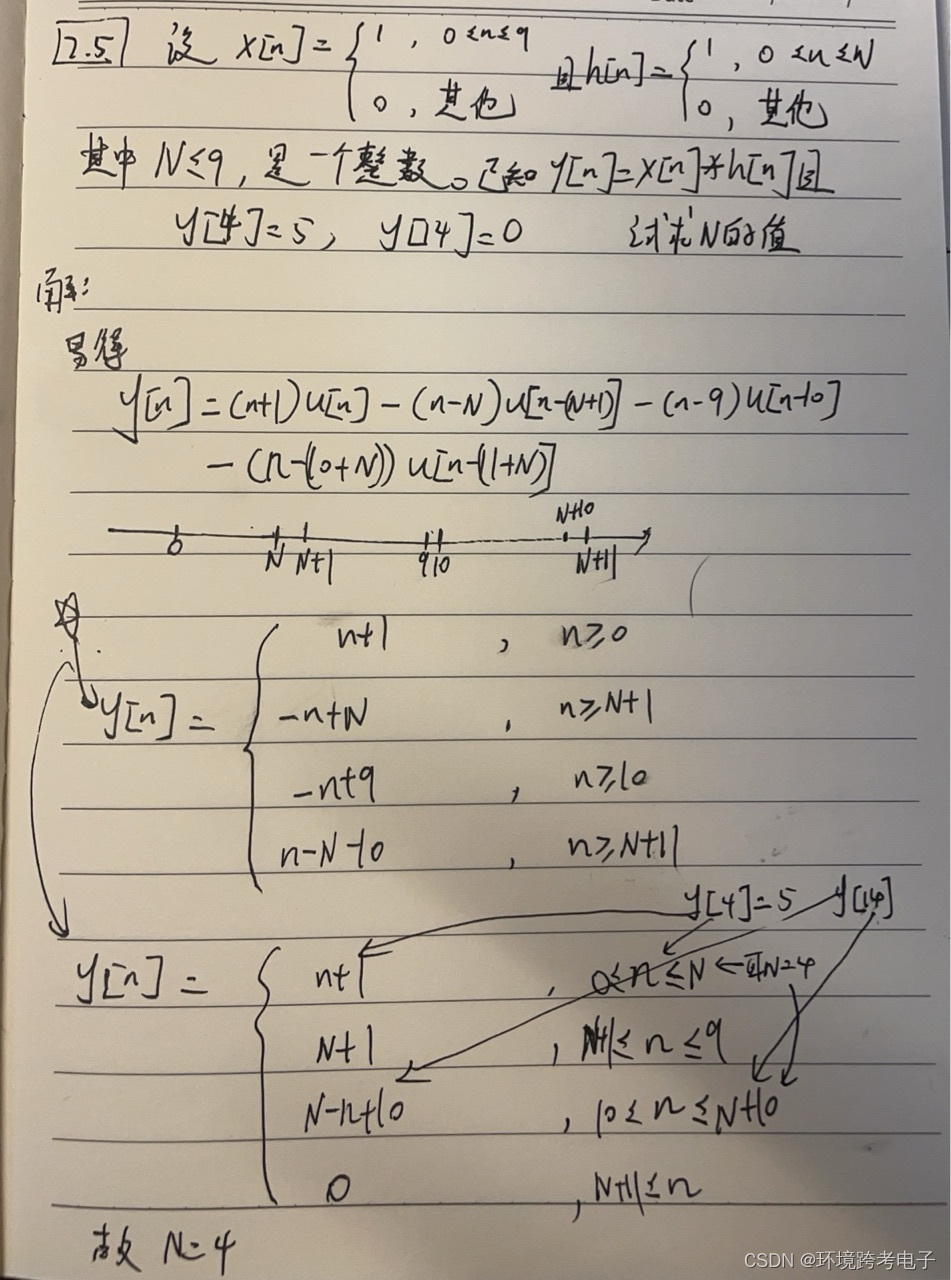 2.5 设 x[n]={1, 0≤n≤9 且h[n]={1, 0≤n≤N
0, 其他 0, 其他
其中 N≤9, 是一个整数。已知 y[n]=x[n]*h[n]且
y[4]=5, y[14]=0 试求N的值
解:
易得
y[n]=(n+1)u[n]-(n-N)u[n-(N+1)]-(n-9)u[n-10]
-(n-(10+N))u[n-(11+N)]
N+10
0 N N+1 9 10 N+11
n+1, n≥0
y[n]= -n+N, n≥N+1
-n+9, n≥10
n-N-10, n≥N+11
y[4]=5 y[14]
y[n]= n+1, 0≤n≤N ← 取N=4
N+1, N+1≤n≤9
N-n+10, 10≤n≤N+10
0, N+11≤n
故 N=4
CSDN @环境跨考电子